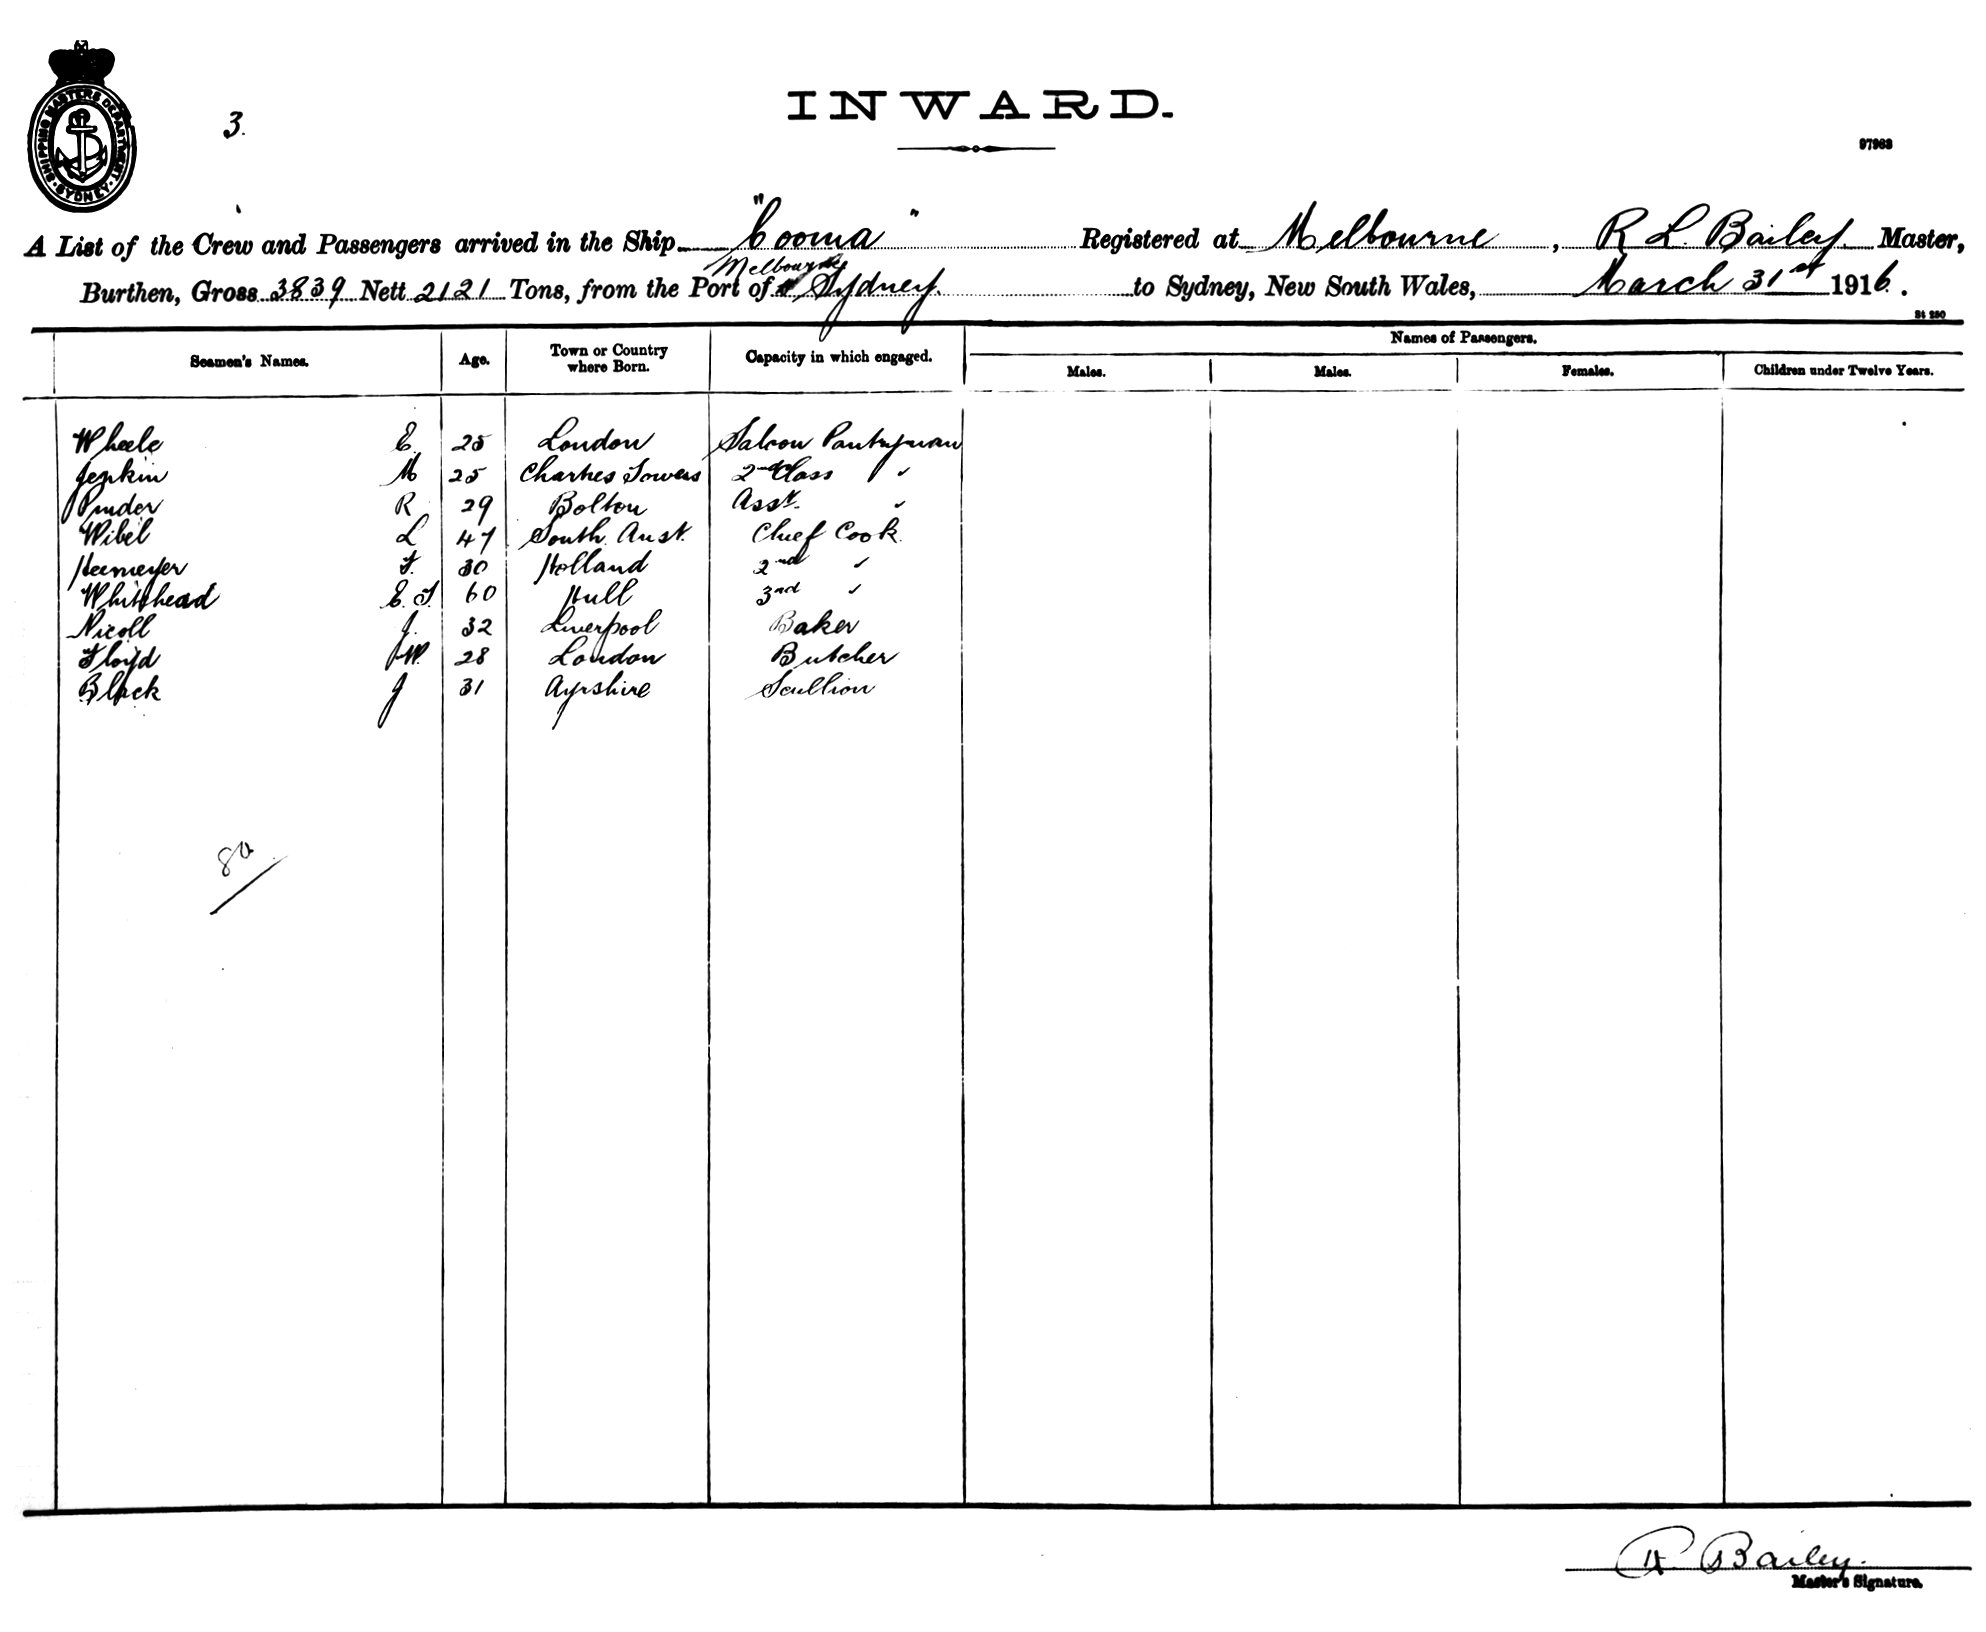 SHIPPING MASTERS DEPARTMENT
SYDNEY
3.
INWARD.
97983
A List of the Crew and Passengers arrived in the Ship "Cooma" Registered at Melbourne, R L. Bailey. Master,
Melbourne
Burthen, Gross 3839 Nett 2121 Tons, from the Port of Sydney. to Sydney, New South Wales, March 31st 1916.
St 280
Seamen's Names. Age. Town or Country where Born. Capacity in which engaged. Names of Passengers.
Males. Males. Females. Children under Twelve Years.
Wheele E. 25 London Saloon Pantryman
Jenkin M 25 Charters Towers 2nd Class "
Pinder R 29 Bolton Asst. "
Wibel L 47 South Aust. Chief Cook
Heemeyer F. 30 Holland 2nd "
Whitehead E. T. 60 Hull 3rd "
Nicoll J. 32 Liverpool Baker
Floyd W. 28 London Butcher
Black J 31 Ayrshire Scullion
80
R. Bailey.
Master's Signature.